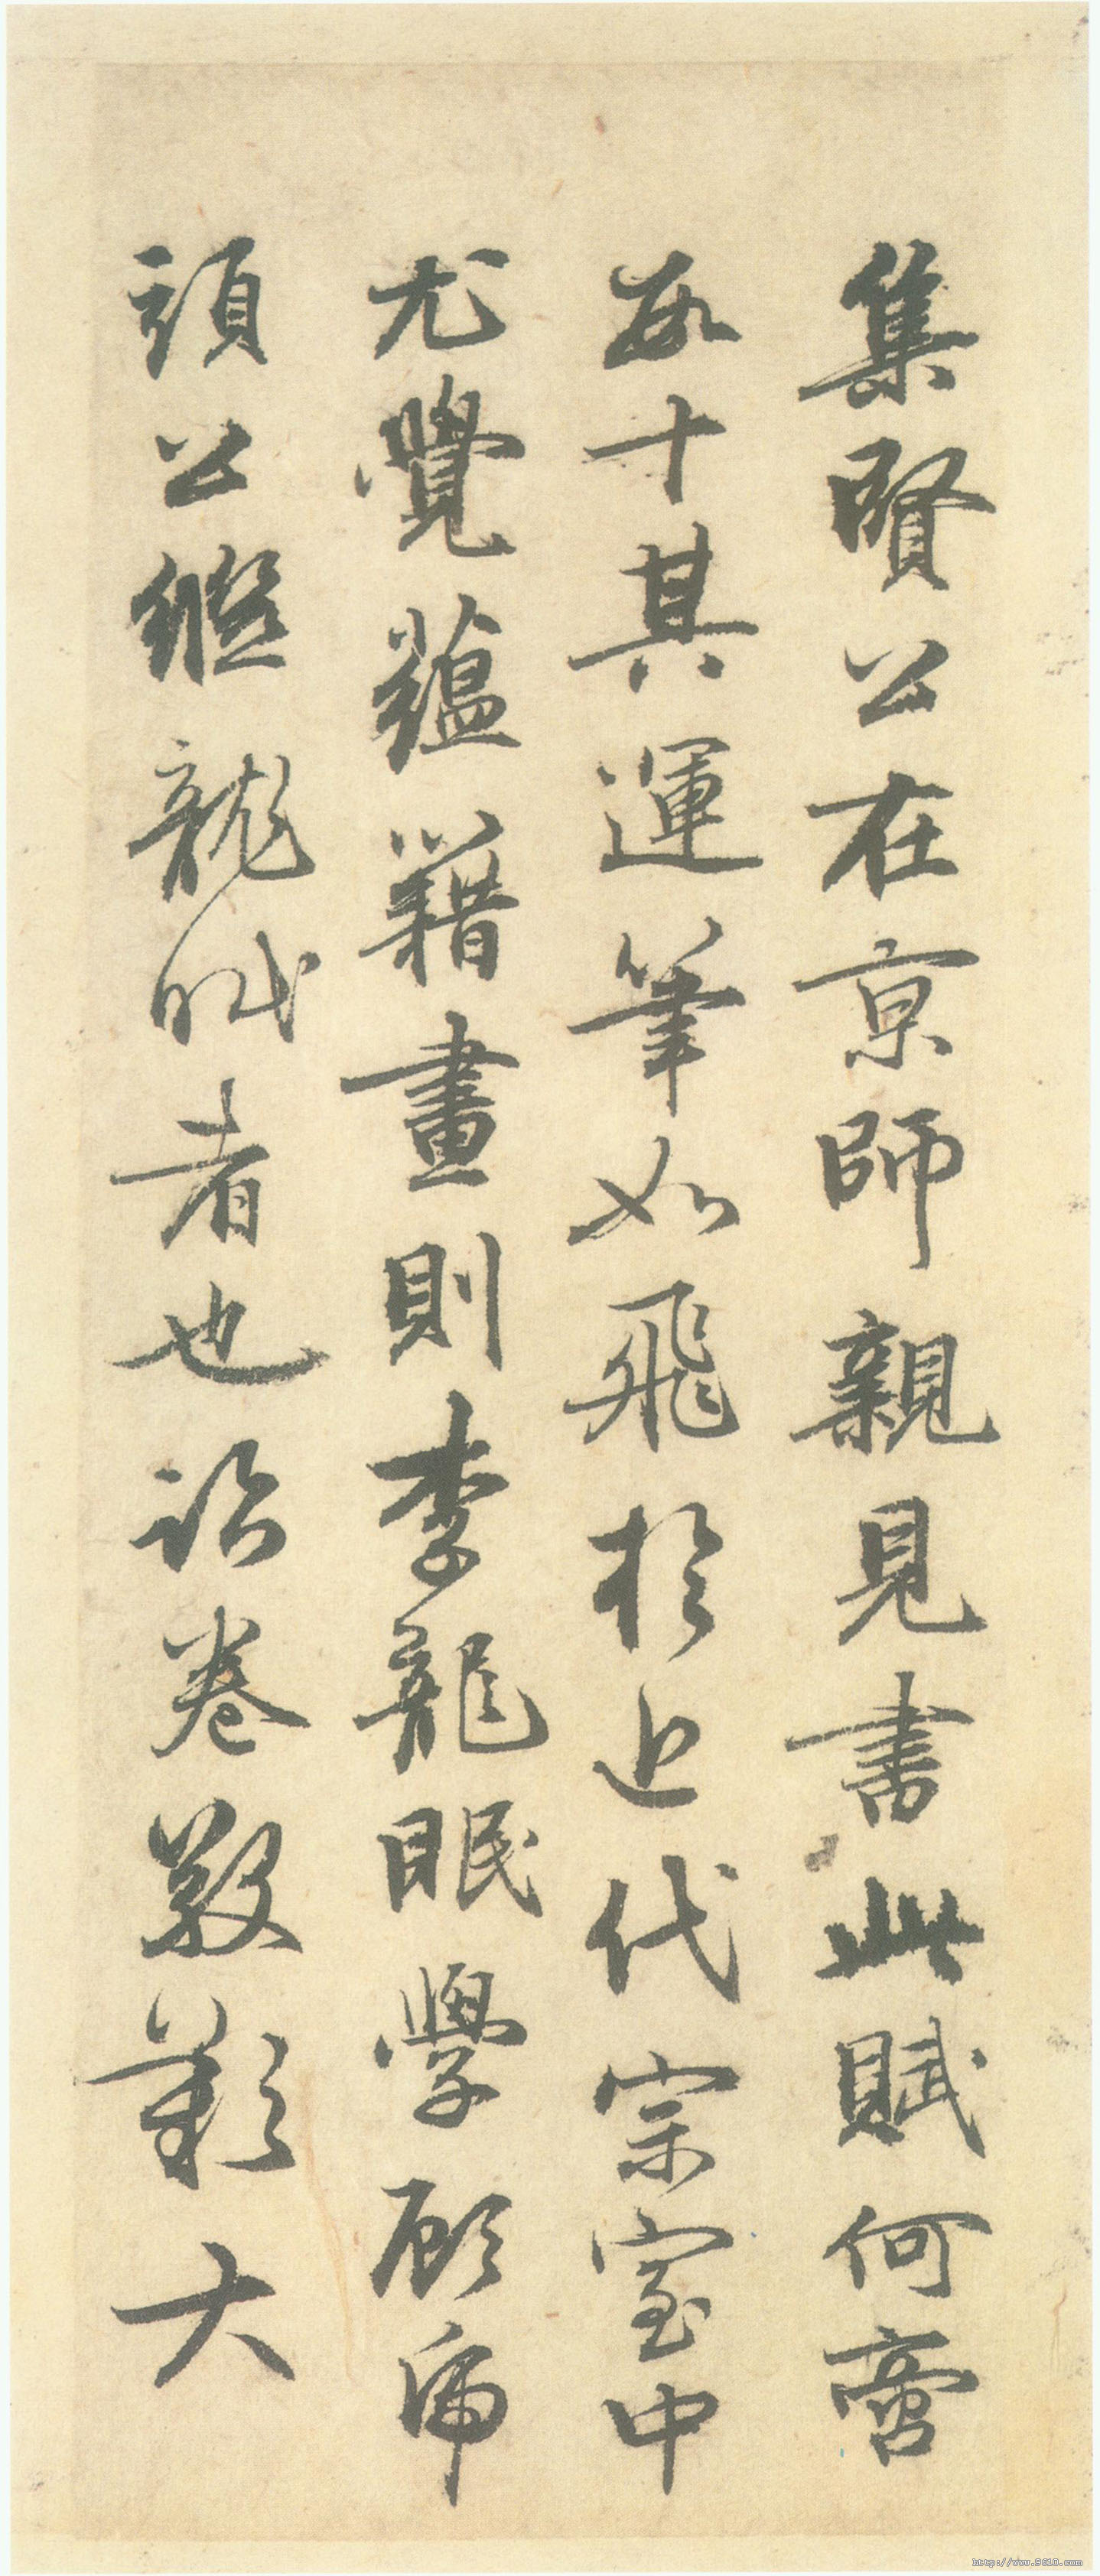 集賢公在京師親見書此賦何啻
數十其運筆如飛於近代宗室中
尤覺蘊藉畫則李龍眠學顧虎
頭公繼龍眠者也詒卷敬歎大
http://www.9610.com